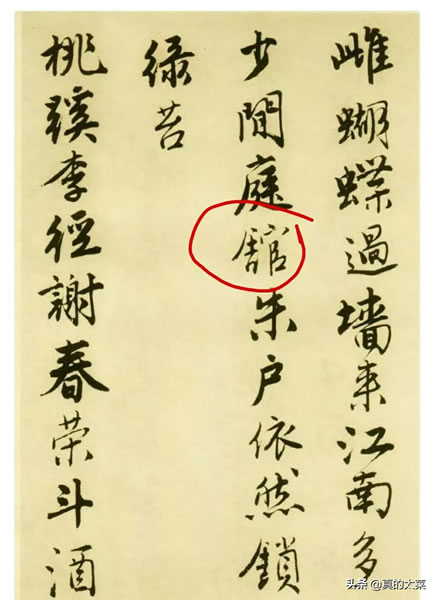 雌蝴蝶過墙来江南多
少閒庭舘朱户依然鎖
緑苔
桃蹊李徑謝春荣斗酒
头条 @真的太菜